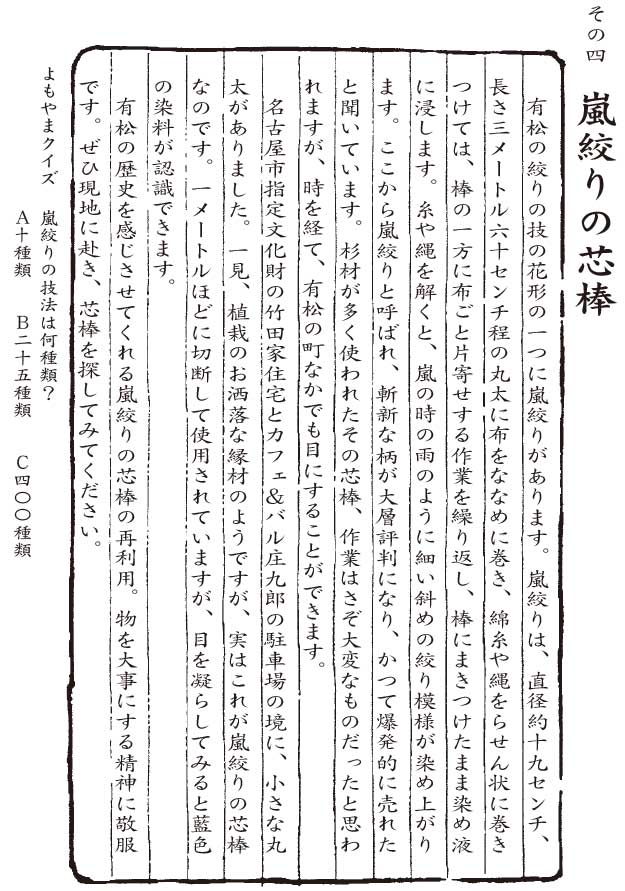 その四
嵐絞りの芯棒
有松の絞りの技の花形の一つに嵐絞りがあります。嵐絞りは、直径約十九センチ、
長さ三メートル六十センチ程の丸太に布をななめに巻き、綿糸や縄をらせん状に巻き
つけては、棒の一方に布ごと片寄せする作業を繰り返し、棒にまきつけたまま染め液
に浸します。糸や縄を解くと、嵐の時の雨のように細い斜めの絞り模様が染め上がり
ます。ここから嵐絞りと呼ばれ、斬新な柄が大層評判になり、かつて爆発的に売れた
と聞いています。杉材が多く使われたその芯棒、作業はさぞ大変なものだったと思わ
れますが、時を経て、有松の町なかでも目にすることができます。
名古屋市指定文化財の竹田家住宅とカフェ&バル庄九郎の駐車場の境に、小さな丸
太がありました。一見、植栽のお洒落な縁材のようですが、実はこれが嵐絞りの芯棒
なのです。一メートルほどに切断して使用されていますが、目を凝らしてみると藍色
の染料が認識できます。
有松の歴史を感じさせてくれる嵐絞りの芯棒の再利用。物を大事にする精神に敬服
です。ぜひ現地に赴き、芯棒を探してみてください。
よもやまクイズ 嵐絞りの技法は何種類?
A十種類 B二十五種類 C四〇〇種類